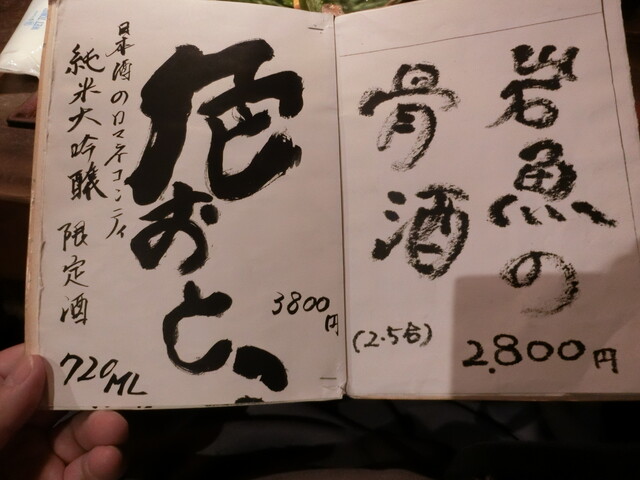 岩魚の
骨酒
(2.5合)
2.800円
おと、
3800円
日本酒のロマネコンティ
純米大吟醸 限定酒
720ML